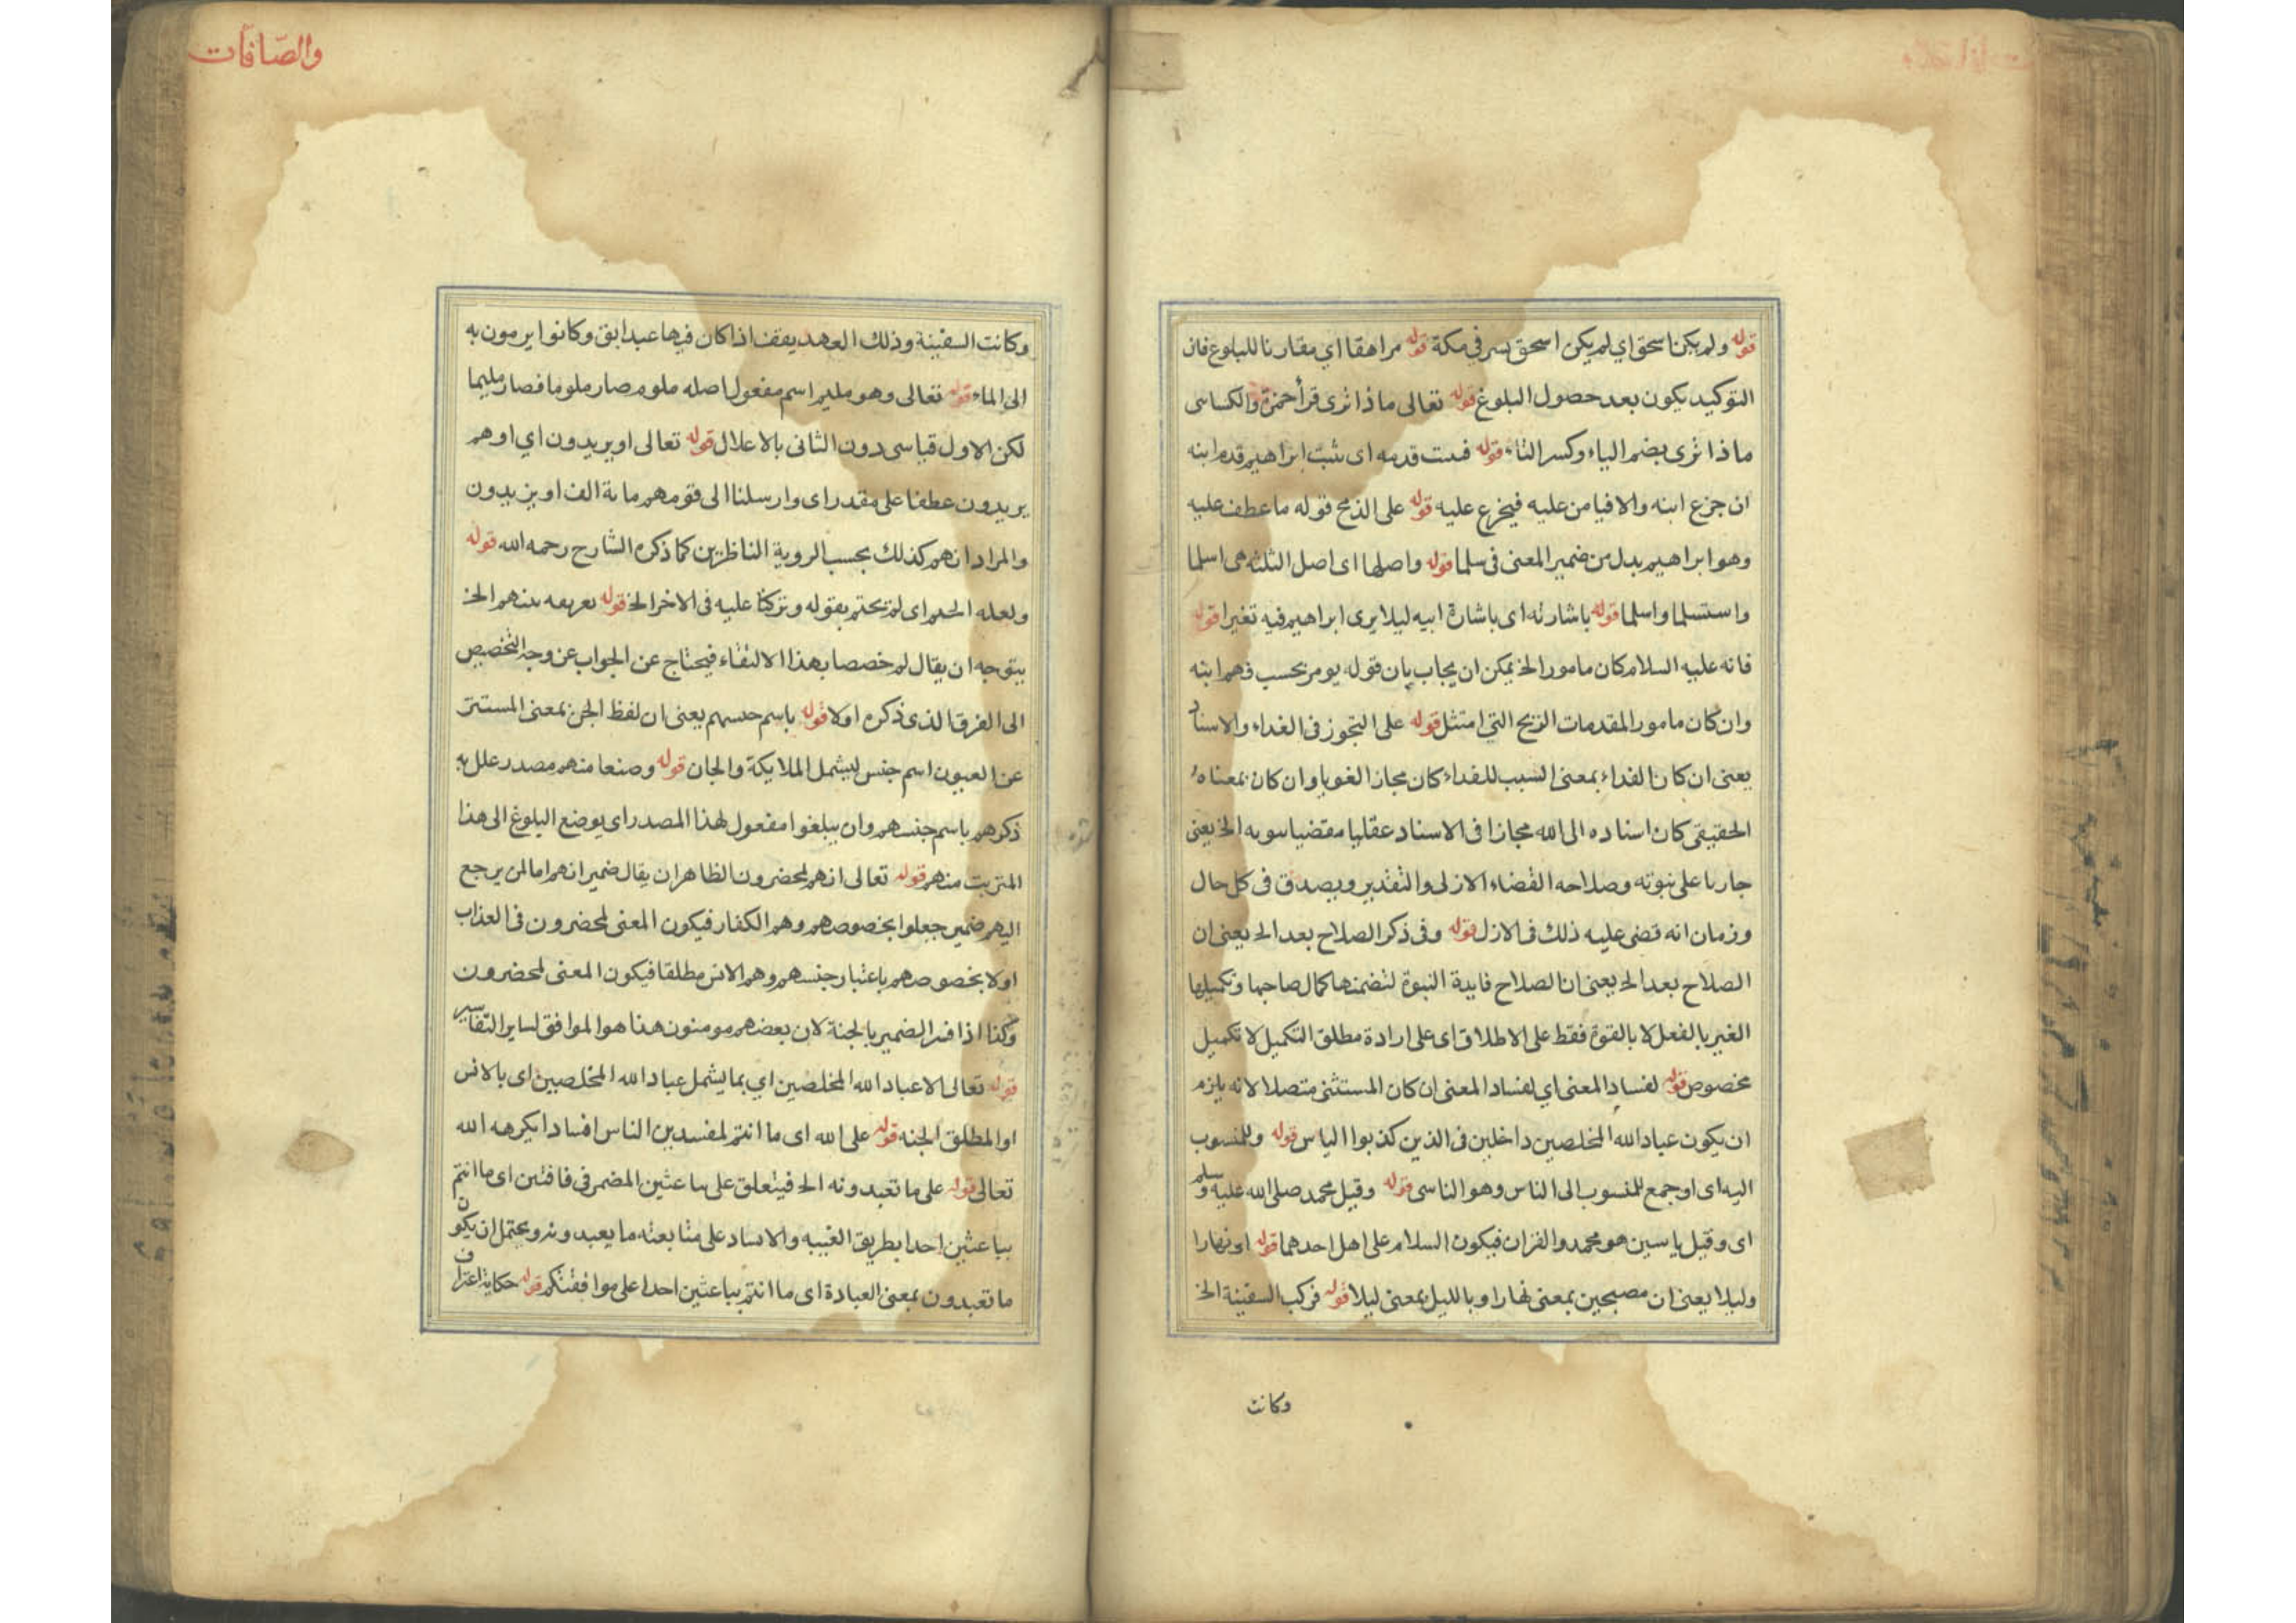 قوله ولم يكن اسحق اي لم يكن اسحق بسر في مكة قوله مراهقا اي مقارنا للبلوغ فان
التوكيد يكون بعد حصول البلوغ قوله تعالى ماذا ترى قرأ حمزة والكسائى
ماذا ترى بضم الياء وكسر التاء قوله فست قدمه اى يثبت ابراهيم قدم ابنه
ان جزع ابنه والا فيامن عليه فيجزع عليه قوله على الذبح قوله ما عطف عليه
وهو ابراهيم بدل من ضمير المعنى فى سلما قوله واصلها اى اصل الثلثه هى اسلما
واستسلما واسلما قوله باشارته اى باشارة ابيه ليلا يرى ابراهيم فيه تغيرا قوله
فانه عليه السلام كان مامورا الخ يمكن ان يجاب بان قوله يومر بحسب فهم ابنه
وان كان مامور المقدمات الزبح التي امتثل قوله على التجوز فى الغداء والاسناد
يعنى ان كان الفداء بمعنى السبب للفداء كان مجازا لغويا وان كان بمعناه
الحقيقى كان اسناده الى الله مجازا فى الاسناد عقليا مقضيا سويه الخ يعنى
جاريا على نبوته وصلاحه القضاء الازلى والتقدير ويصدق فى كل حال
وزمان انه قضى عليه ذلك فى الازل قوله وفى ذكر الصلاح بعد الخ يعنى ان
الصلاح بعد الخ يعنى ان الصلاح فايدة النبوة لتضمنها كمال صاحبها وتكميلها
الغير بالفعل لا بالقوة فقط على الاطلاق اى على ارادة مطلق التكميل لا تكميل
مخصوص قوله لفساد المعنى اي لفساد المعنى ان كان المستثنى متصلا لانه يلزم
ان يكون عباد الله المخلصين داخلين فى الذين كذبوا الياس قوله وللمنسوب
اليه اى او جمع للمنسوب الى الناس وهو الناسى قوله وقيل محمد صلى الله عليه وسلم
اى وقيل ياسين هو محمد والقران فيكون السلام على اهل احدهما قوله او نهارا
وليلا يعنى ان مصبحين بمعنى نهارا وبالليل بمعنى ليلا قوله فركب السفينة الخ
وكانت
والصّافّات
وكانت السفينة وذلك العهد يقف اذا كان فيها عبد ابق وكانوا يرمون به
الى الماء قوله تعالى وهو مليم اسم مفعول اصله ملوم صار ملوما فصار مليما
لكن الاول قياسى دون الثانى بالاعلال قوله تعالى او يريدون اي او هم
يريدون عطفا على مقدر اى وارسلنا الى قومهم ماية الف او يزيدون
والمراد انهم كذلك بحسب الروية الناظرين كما ذكره الشارح رحمه الله قوله
ولعله الخ اى لم تختم بقوله وتركنا عليه فى الاخر الخ قوله تعريفه الخ
يتوجه ان يقال لم خصصا بهذا الالتقاء فيحتاج عن الجواب عن وجه التخصيص
الى الفرق الذى ذكره اولا قوله باسم جنسهم يعنى ان لفظ الجن بمعنى المستتر
عن العيون اسم جنس ليشمل الملايكة والجان قوله وصنعا منهم مصدر علل به
ذكرهم باسم جنسهم وان يبلغوا مفعول لهذا المصدر اى يوضع البلوغ الى هذا
المترتبت منهم قوله تعالى انهم لمحضرون الظاهر ان يقال ضمير انهم اما لمن يرجع
اليهم ضمير جعلوا بخصوصهم وهم الكفار فيكون المعنى لمحضرون فى العذاب
اولا بخصوصهم باعتبار جنسهم وهم الانس مطلقا فيكون المعنى لمحضرون
وكذا اذا فسر الضمير بالجنة لان بعضهم مومنون هذا هو الموافق لساير التفاسير
قوله تعالى الا عباد الله المخلصين اي بما يشمل عباد الله المخلصين اى بالانس
او المطلق الجنه قوله على الله اى ما انتم لمفسدين الناس افسادا يكرهه الله
تعالى قوله على ما تعبدونه الخ فيتعلق على بباعثين المضمر فى فاتنين اى ما انتم
بباعثين احدا بطريق الغيبه والاساد على متابعته ما يعبدونه ويحتمل ان يكون
ما تعبدون بمعنى العبادة اى ما انتم بباعثين احدا على موافقتكم قوله حكاية اعتراف